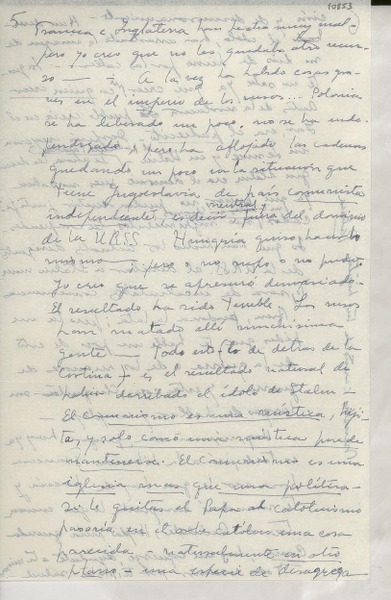 10853
5
Francia e Inglaterra han hecho muy mal —
pero yo creo que no les quedaba otro recur-
so — A la vez ha habido cosas gra-
ves en el imperio de los rusos... Polonia
se ha liberado un poco, no se ha inde-
pendizado, pero ha aflojado las cadenas
quedando un poco en la situación que
tiene Yugoslavia, de país comunista
neutral,
independiente, es decir, fuera del dominio
de la URSS. Hungría quiso hacer lo
mismo, pero o no supo o no pudo.
Yo creo que se apresuró demasiado.
El resultado ha sido terrible. Los rusos
han matado allí muchísima
gente — Todo esto (lo de detrás de la
cortina) es el resultado natural de
haber derribado el ídolo de Stalin —
— El comunismo es una mística,
y solo como una mística puede
mantenerse. El comunismo es una
iglesia mas que una política —
si le quitas el Papa al catolicismo
pasaría en el orbe católico una cosa
parecida, naturalmente en otro
plano — una especie de disgrega